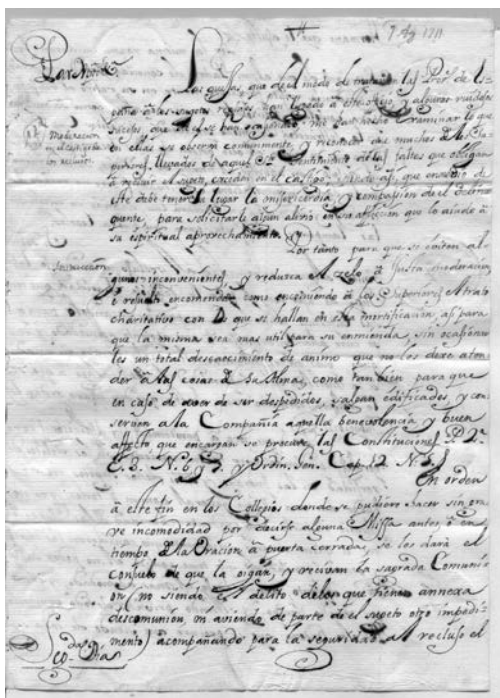 7 Ag. 1711
Las quejas, que de el modo de tratar las Prov.s de Es-
paña à los sugetos reclusos, han llegado à este oficio, y algunos ruidosos
sucessos, que en el se han originado, me han hecho examinar lo que
Moderacion
en el castigo de
en reclusos.
en ellas se observa comunmente, y reconocer que muchos de los Su-
periores, llevados de aquel, constituidos de las faltas que obligan
à recluir el sugeto, exceden en el castigo, siendo assi, que en medio de
este debe tener su lugar la misericordia, y compasion de el delin-
quente, para solicitarle algun alivio en su afliccion que lo ayude à
su espiritual aprovechamiento.
Por tanto para que se eviten al-
gunos inconvenientes, y reduzca el zelo à justa moderacion,
è resuelto encomendar como encomiendo à los Superiores el trato
charitativo con los que se hallan en esta mortificacion, assi para
que la misma sea mas util para su enmienda, sin ocasionar
les un total descaecimiento de animo que no los dexe aten
der à las cosas de su Alma, como tambien para que
en caso de aver de ser despedidos, salgan edificados, y con
serven a la Compañia aquella benevolencia y buen
affecto que encargan se procure las Constituciones P. 2.ª
C. 3. N. 6 y 8. y Ordin. Gen. Cap. 12 N. 5.
En orden
à este fin en los Collegios donde se pudiere hacer sin gra
ve incomodidad por decirse alguna Missa antes, ò en
tiempo de la Oracion à puerta cerrada, se les dará el
consuelo de que la oigan, y recivan la sagrada Comuni-
on (no siendo el delito de los que tienen annexa
descomunion, ni aviendo de parte de el sugeto otro impedi-
mento) acompañando para la seguridad al recluso el